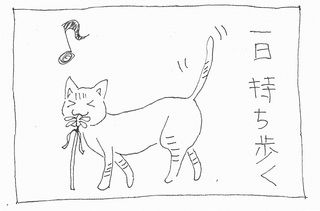 一日持ち歩く